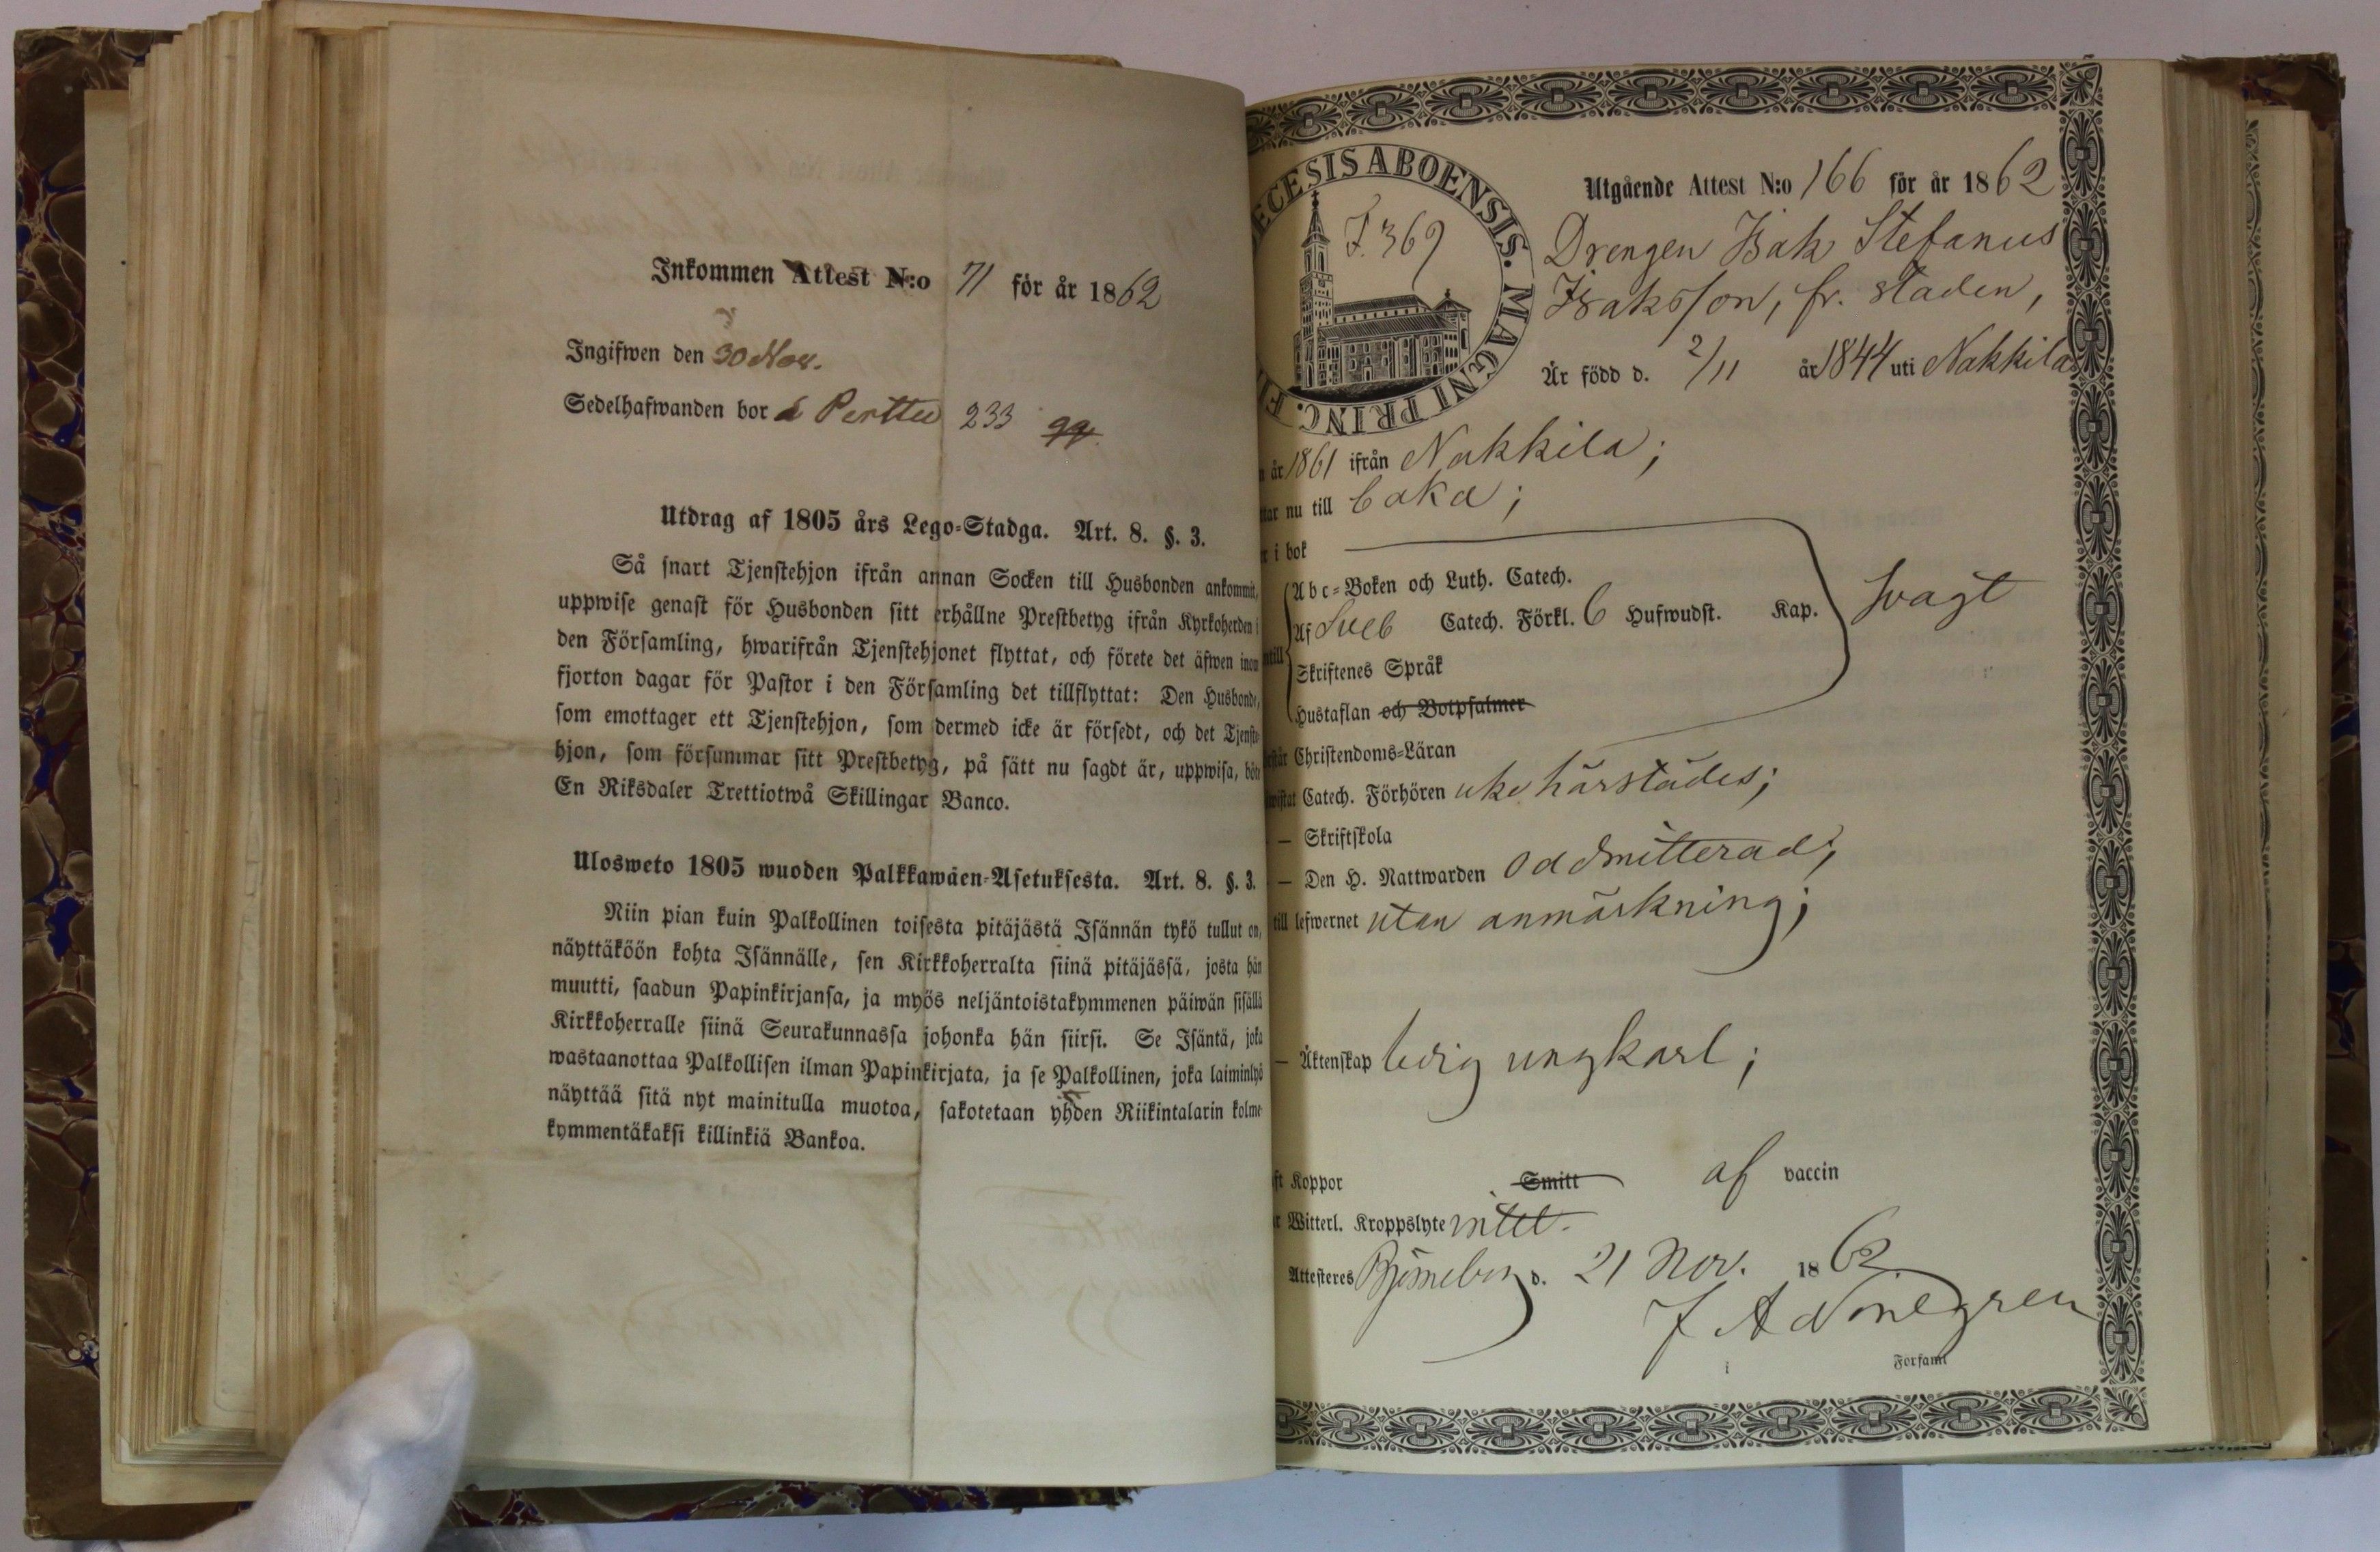 Inkommen Attest N:o 71 för år 1862
Ingifwen den 30 Nov.
Sedelhafwanden bor å Perttu 233 99.
Utdrag af 1805 års Lego-Stadga. Art. 8. §. 3.
Så snart Tjenstehjon ifrån annan Socken till Husbonden ankommit,
uppwise genast för Husbonden sitt erhållne Prestbetyg ifrån Kyrkoherden i
den Församling, hwarifrån Tjenstehjonet flyttat, och förete det äfwen inom
fjorton dagar för Pastor i den Församling det tillflyttat: Den Husbonde,
som emottager ett Tjenstehjon, som dermed icke är försedt, och det Tjenste-
hjon, som försummar sitt Prestbetyg, på sätt nu sagdt är, uppwisa, böte
En Riksdaler Trettiotwå Skillingar Banco.
Ulosweto 1805 wuoden Palkkawäen-Asetuksesta. Art. 8. §. 3.
Niin pian kuin Palkollinen toisesta pitäjästä Isännän tykö tullut on,
näyttäköön kohta Isännälle, sen Kirkkoherralta siinä pitäjässä, josta hän
muutti, saadun Papinkirjansa, ja myös neljäntoistakymmenen päiwän sisällä
Kirkkoherralle siinä Seurakunnassa johonka hän siirsi. Se Isäntä, joka
wastaanottaa Palkollisen ilman Papinkirjata, ja se Palkollinen, joka laiminlyö
näyttää sitä nyt mainitulla muotoa, sakotetaan yhden Riikintalarin kolme-
kymmentäkaksi killinkiä Bankoa.
ECESIS ABOENSIS. MAGNI PRINC. FI
F. 369
Utgående Attest N:o 166 för år 1862
Drengen Isak Stefanus
Isaksson, fr. staden,
Är född d. 2/11 år 1844 uti Nakkila
år 1861 ifrån Nakkila;
nu till baka;
i bok
Abc-Boken och Luth. Catech.
Af Sveb Catech. Förkl. 6 Hufwudst. Kap. svagt
Skriftenes Språk
Hustaflan och Botpsalmer
Christendoms-Läran
Catech. Förhören icke härstädes;
— Skriftskola
— Den H. Nattwarden oadmitterad;
till lefwernet utan anmärkning;
— Äktenskap ledig ungkarl;
Koppor Smitt af vaccin
Witterl. Kroppslyte intet.
Attesteres Björneborg d. 21 Nov. 1862
i Församl